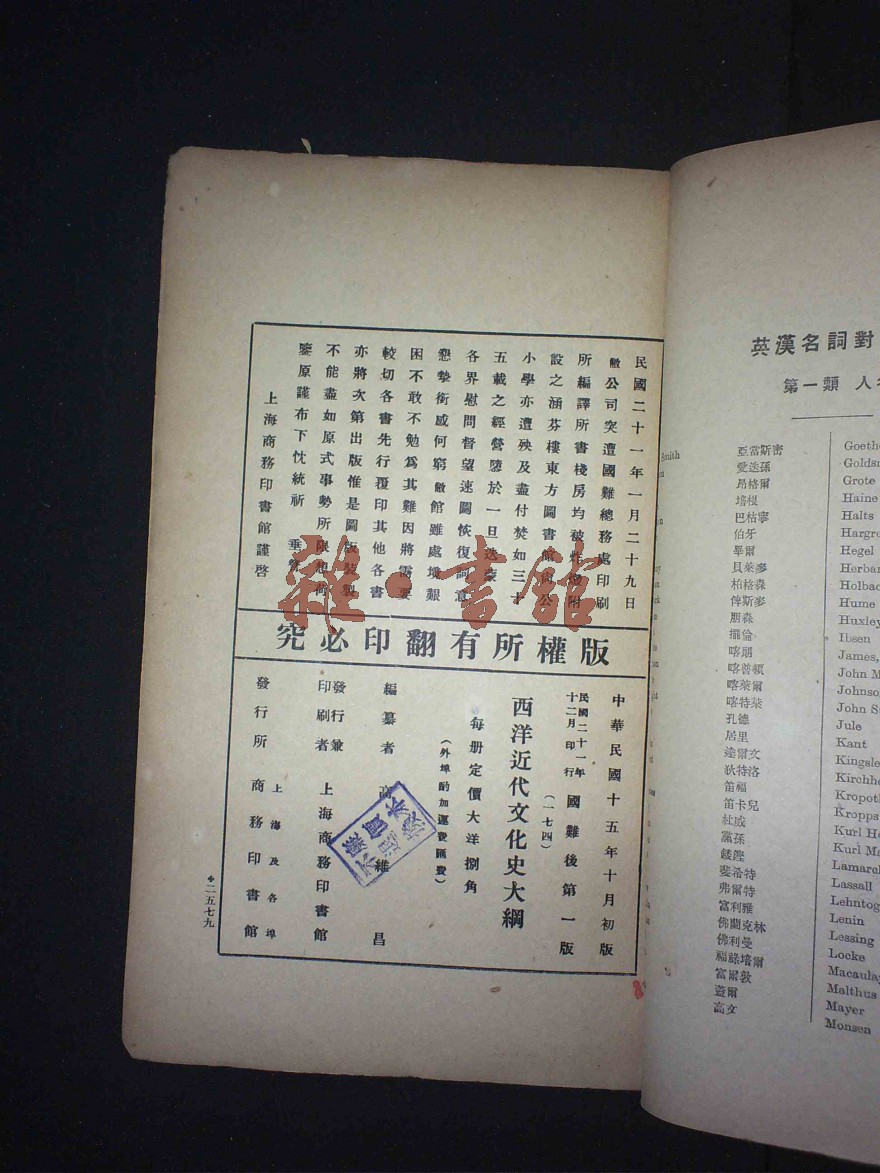 民國二十一年一月二十九日
敝公司突遭國難總務處印刷
所編譯所書棧房均被炸燬附
設之涵芬樓東方圖書館尚公
小學亦遭殃及盡付焚如三十
五載之經營隳於一旦迭蒙
各界慰問督望速圖恢復詞意
懇摯銜感何窮敝館雖處境艱
困不敢不勉爲其難因將需要
較切各書先行覆印其他各書
亦將次第出版惟是圖版裝製
不能盡如原式事勢所限想荷
鑒原謹布下忱統祈 垂詧
上海商務印書館謹啓
版權所有翻印必究
中華民國十五年十月初版
民國二十一年十二月印行 國難後第一版
(一七四)
西洋近代文化史大綱
每册定價大洋捌角
(外埠酌加運費匯費)
編纂者 高維昌
發行兼印刷者 上海商務印書館
發行所 上海及各埠 商務印書館
二五七九
雜·書館
英漢名詞對
第一類 人名
Smith
亞當斯密
愛迭孫
昂格爾
培根
巴枯寧
伯牙
畢爾
貝萊麥
柏格森
俾斯麥
朋森
擺倫
喀朋
喀普頓
喀萊爾
喀特萊
孔德
居里
達爾文
狄特洛
笛福
笛卡兒
杜威
黨孫
斐希特
弗爾特
富利雅
佛蘭克林
佛利曼
福祿培爾
富爾敦
蓋爾
高文
Goethe
Goldsm
Grote
Haine
Halts
Hargre
Hegel
Herbar
Holbac
Hume
Huxley
Ibsen
James,
John M
Johnso
John St
Jule
Kant
Kingsle
Kirchho
Kropotk
Kropps
Kurl He
Kurl Ma
Lamarck
Lassall
Lehntog
Lenin
Lessing
Locke
Macaulay
Malthus
Mayer
Monsen